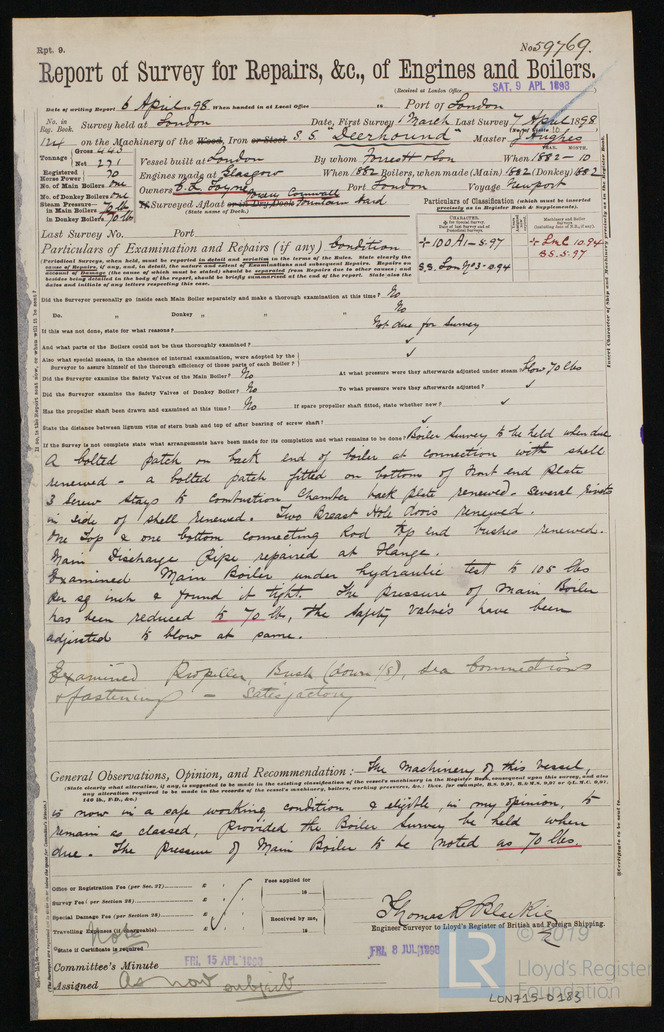 Rpt. 9.
No. 59769.
Report of Survey for Repairs, &c., of Engines and Boilers.
(Received at London Office SAT. 9 APL 1898
Date of writing Report 6 April 98 When handed in at Local Office to Port of London
No. in Reg. Book. Survey held at London Date, First Survey 1 March Last Survey 7 April 1898
124 on the Machinery of the Wood, Iron or Steel S.S. "Deerhound" Master J Hughes
Tonnage Gross 443 Net 271
Vessel built at London By whom Forrestt & Son When 1882 - 10
Registered Horse Power 70
Engines made at Glasgow When 1882 Boilers, when made (Main) 1882 (Donkey) 1882
No. of Main Boilers one
No. of Donkey Boilers one
Owners Port London Voyage Newport
Steam Pressure in Main Boilers 70 lbs
in Donkey Boilers 70 lbs
If Surveyed Afloat or in Dry Dock Fountain
(State name of Dock.)
Particulars of Classification (which must be inserted precisely as in Register Book & Supplements).
Last Survey No. Port
Particulars of Examination and Repairs (if any) Condition
+ 100 A1 - 5.97
+ LMC 10.94
B.S. 5.97
S.S. Lon No3 - 10.94
Did the Surveyor personally go inside each Main Boiler separately and make a thorough examination at this time? No
Do. " Donkey " " " No
If this was not done, state for what reasons? Not due for Survey
And what parts of the Boilers could not be thus thoroughly examined? ✓
Also what special means, in the absence of internal examination, were adopted by the
Surveyor to assure himself of the thorough efficiency of those parts of each Boiler? ✓
Did the Surveyor examine the Safety Valves of the Main Boiler? No At what pressure were they afterwards adjusted under steam? Blow 70 lbs
Did the Surveyor examine the Safety Valves of Donkey Boiler? No To what pressure were they afterwards adjusted? ✓
Has the propeller shaft been drawn and examined at this time? No If spare propeller shaft fitted, state whether new? ✓
State the distance between lignum vitæ of stern bush and top of after bearing of screw shaft? ✓
If the Survey is not complete state what arrangements have been made for its completion and what remains to be done? Boiler Survey to be held when due
A bolted patch on back end of boiler at connection with shell
renewed - a bolted patch fitted on bottom of front end plate
3 Screw Stays to combustion Chamber back plate renewed. Several rivets
in side of shell renewed. Two Breast Hole doors renewed.
One Top & one bottom connecting Rod Top end bushes renewed.
Main Discharge Pipe repaired at Flange.
Examined Main Boiler under hydraulic test to 105 lbs
per sq inch & found it tight. The pressure of Main Boiler
has been reduced to 70 lbs, the Safety Valves have been
adjusted to blow at same.
Examined Propeller, Bush (down 1/8), Sea Connections
& fastenings - Satisfactory
General Observations, Opinion, and Recommendation :- The Machinery of this vessel,
(State clearly what alteration, if any, is suggested to be made in the existing classification of the vessel's machinery in the Register Book, consequent upon this survey, and also
any alteration required to be made in the records of the vessel's machinery, boilers, working pressures, &c.; thus, for example, B.S. 9,97, B.& M.S. 9,97 or +L.M.C. 9,97,
140 lb., F.D., &c.)
is now in a safe working condition & eligible, in my opinion, to
remain as classed, provided the Boiler Survey be held when
due. The pressure of Main Boiler to be noted as 70 lbs.
Office or Registration Fee (per Sec. 27) £
Survey Fee (per Section 28) £
Special Damage Fee (per Section 28) £
Travelling Expenses (if chargeable) £
Fees applied for
18
Received by me,
18
Thomas R Blackie
Engineer Surveyor to Lloyd's Register of British and Foreign Shipping.
Note
State if Certificate is required
Committee's Minute FRI. 15 APL 1898 FRI. 8 JUL 1898
Assigned As now subject
© 2019
LR
Lloyd's Register
Foundation
LON715-0183